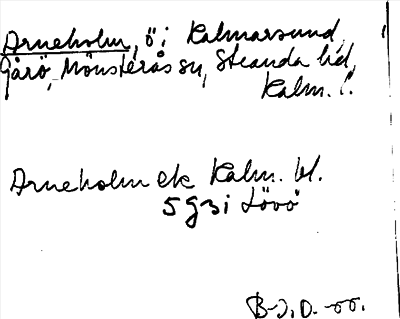 Arneholm, ö i Kalmarsund,
Gårö, Mönsterås sn, Stranda hd,
Kalm. l.
Arneholm ek Kalm. bl.
5 g 3 i Lövö